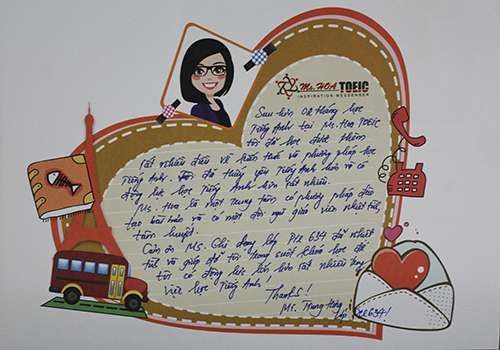 Ms. HOA TOEIC
INSPIRATION MESSENGER
Sau hơn 02 tháng học
Tiếng Anh tại Ms. Hoa TOEIC
tôi đã học được thêm
rất nhiều điều về kiến thức và phương pháp học
Tiếng Anh. Tôi đã thấy yêu Tiếng Anh hơn và có
động lực học Tiếng Anh hơn rất nhiều.
Ms. Hoa là một trung tâm có phương pháp đào
tạo bài bản và có một đội ngũ giáo viên nhiệt tình,
tâm huyết.
Cảm ơn Ms. Chi dạy lớp Pre 634 đã nhiệt
tình và giúp đỡ tôi trong suốt khóa học để
tôi có động lực lớn hơn rất nhiều trong
việc học Tiếng Anh.
Thanks!
Ms. Trung
lớp Pre 634!